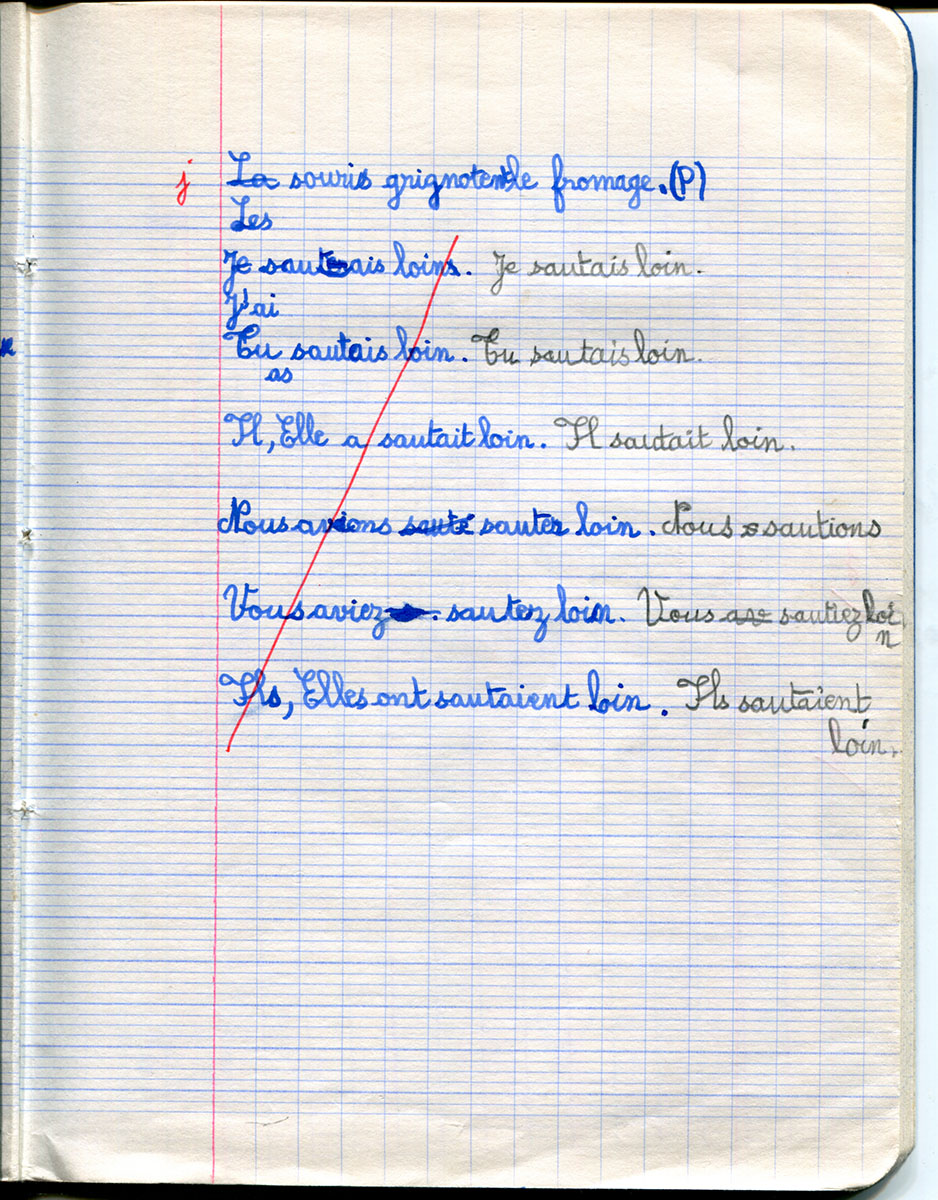 j La souris grignotent le fromage. (P)
Les
Je sautais loin. Je sautais loin.
J'ai
Tu sautais loin. Tu sautais loin.
as
Il, Elle a sautait loin. Il sautait loin.
Nous avions sauté sauter loin. Nous sautions
Vous aviez sautez loin. Vous sautiez loi
n
Ils, Elles ont sautaient loin. Ils sautaient
loin.